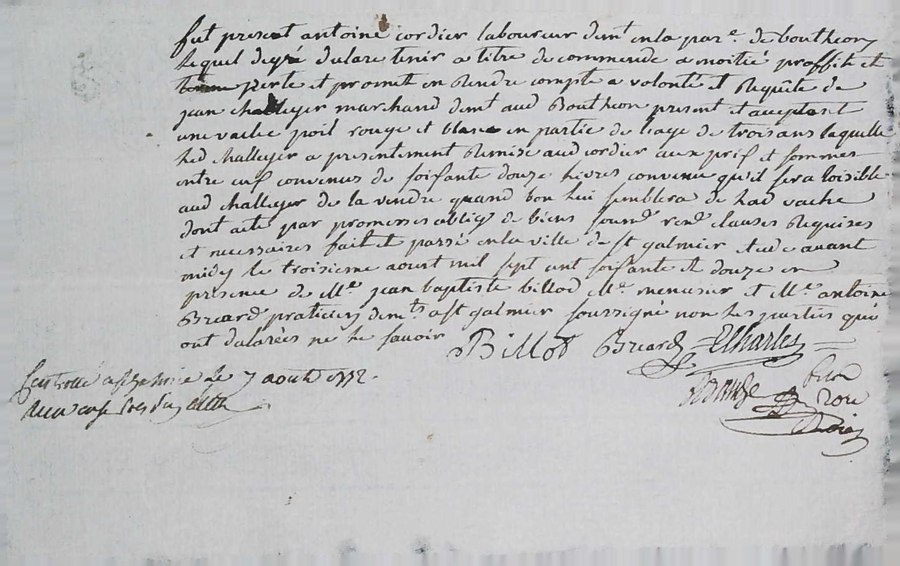 fut present antoine cordier laboureur demt en la pare. de boutheon
lequel degré dclare tenir a titre de commende a moitié proffit et
perte et promet en rendre compte a volonté et Requête de
jean challeyer marchand demt aud Boutheon present et acceptant
une vache poil rouge et blanc en partie de l'age de trois ans laquelle
led challeyer a presentement Remise aud cordier aux prif et sommes
entre eux convenus de soifante douze livres convenu qu'il sera loisible
aud challeyer de la vendre quand bon lui semblera de lad vache
dont acte par promesses obligs de biens soums renos clauses Requises
et necessaires fait et passé en la ville de st galmier etude avant
midy le troisieme aoust mil sept cent soifante et douze en
presence de Me. jean baptiste billod Me. menusier et Me. antoine
Breard praticien demts a st galmier soussignés non les parties qui
ont dclarées ne le savoir
Billod Breard
le 7 aoust 1772.